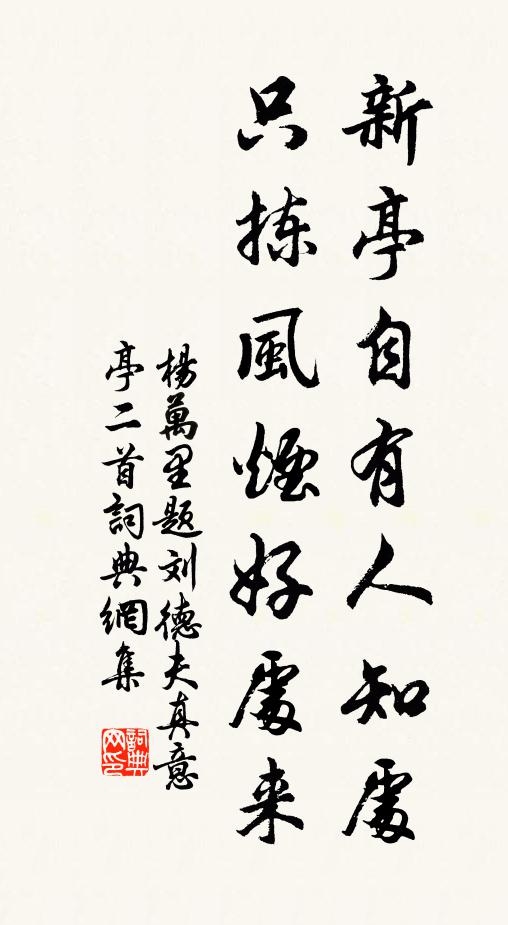 新亭自有人知處
只拣風煙好處来
楊萬里题刘德夫真意
亭二首詞典網集
詞典网印